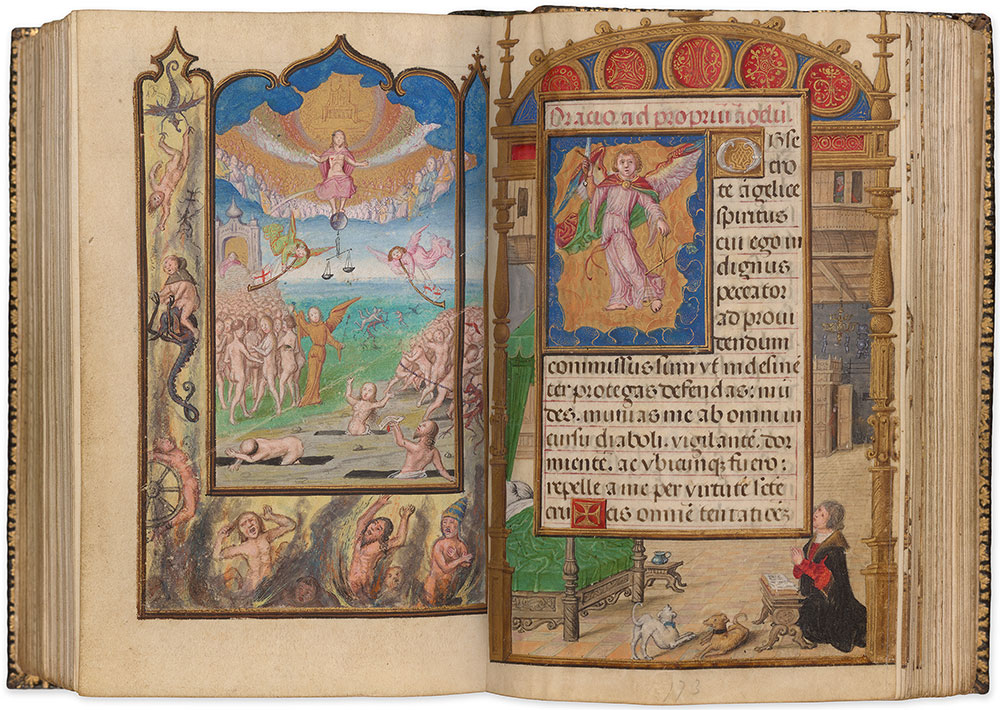 Oracio ad propriū āgelū.
Obse
cro
te āgelice
spiritus
cui ego in
dignus
peccator
ad proui
dendum
commissus sum vt indesinē
ter protegas defendas: mū
des. munias me ab omni in
cursu diaboli. vigilantē. dor
mientē. ac vbicunq fuero:
repelle a me per virtutē scte
crucis omnē tentacōꝫ
173